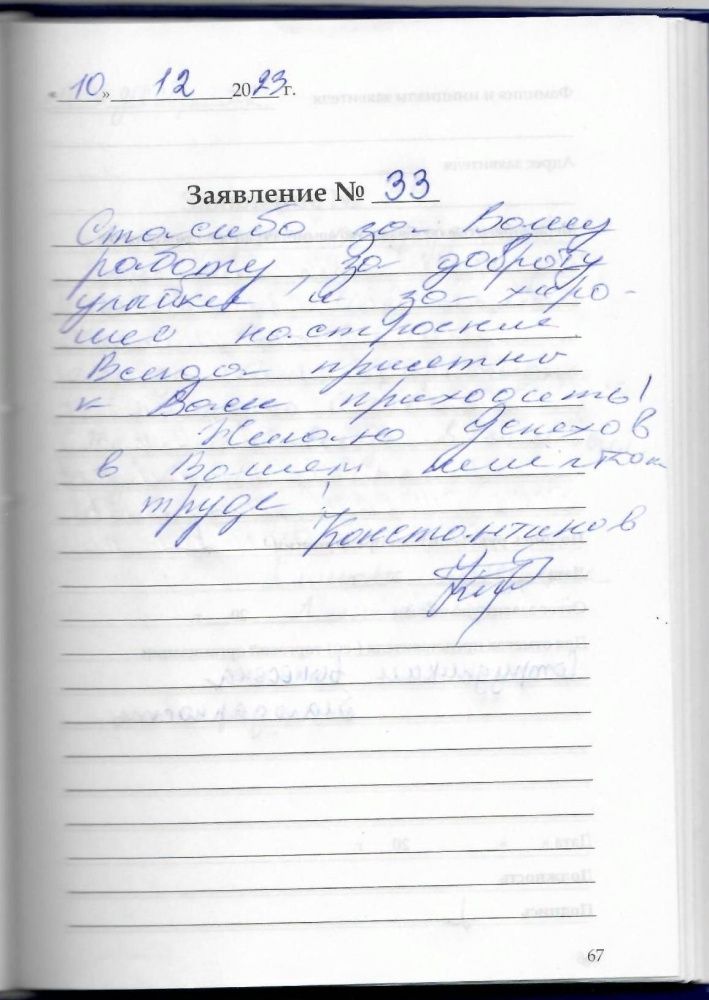 «10» 12 2023г.
Заявление № 33
Спасибо за Вашу
работу, за доброту
улыбки и за хоро-
шее настроение
Всегда приятно
к Вам приходить!
Желаю Успехов
в Вашем нелегком
труде!
Константинов
67